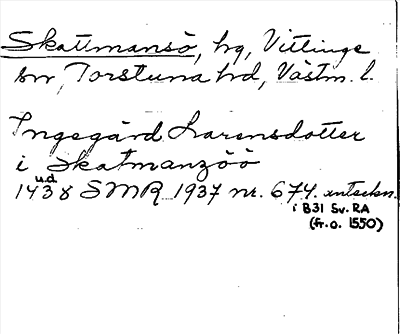 Skattmansö, hg, Vittinge
sn, Torstuna hd, Västm. l.
Ingegärd Larensdotter
i Skatmanzöö
u.d.
1438 SMR 1937 nr. 674. anteckn.
i B31 Sv. RA
(fr. o. 1550)